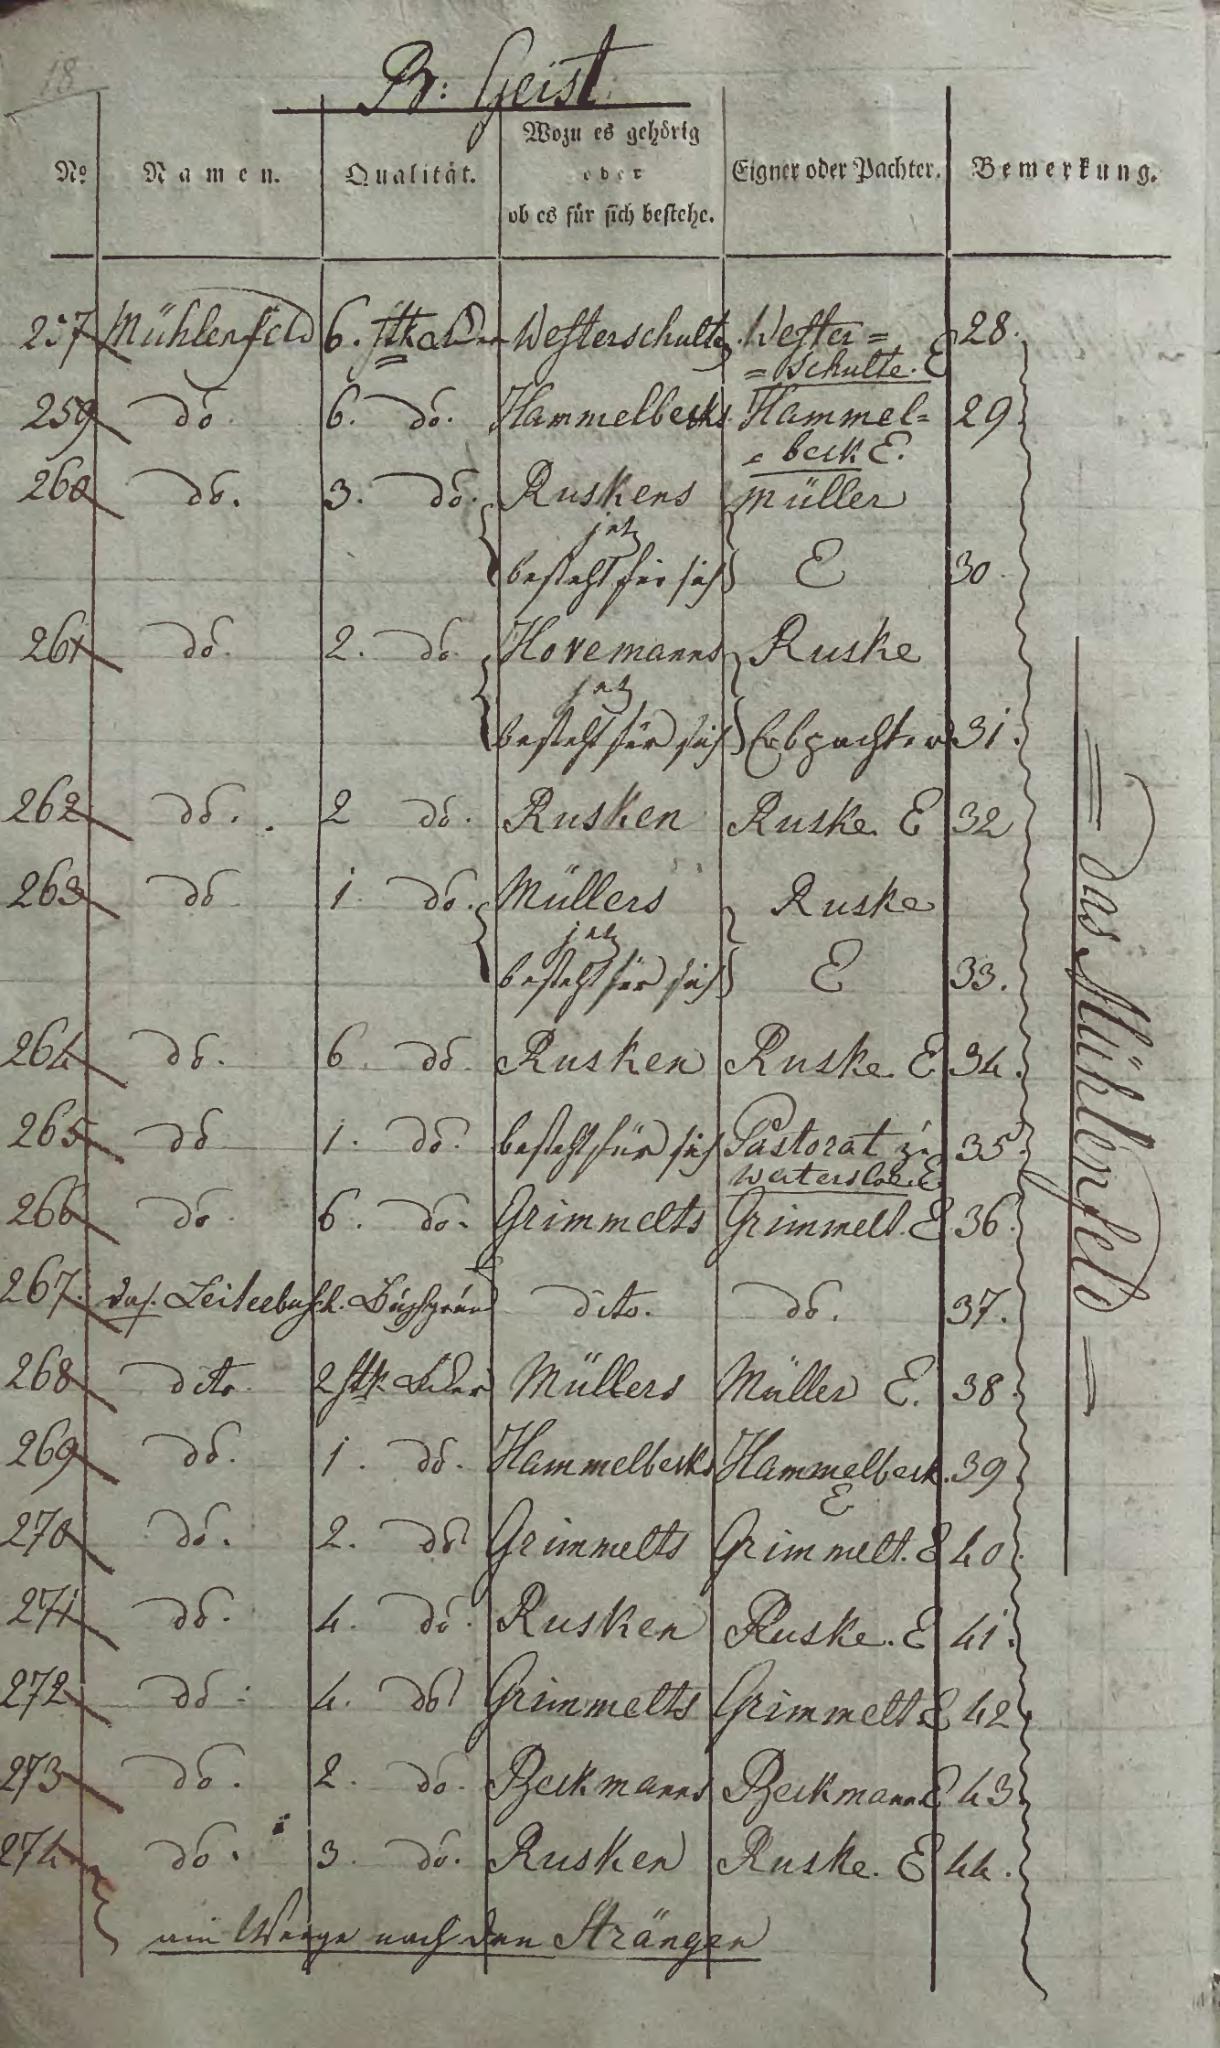 18
B: Geist
No. Namen. Qualität. Wozu es gehörig oder ob es für sich bestehe. Eigner oder Pachter. Bemerkung.
257 Mühlenfeld 6. stk Westerschulte Wester= 28.
=schulte. E
259 do. 6. do. Hammelbecks Hammel= 29.
=beck E.
260 do. 3. do. Ruskens Müller
jetz
besteht für sich E 30
261 do. 2. do. Hovemanns Ruske
jetz
besteht für sich Erbpachter 31.
262 do. 2 do. Rusken Ruske. E 32
263 do 1. do. Müllers Ruske
jetz
besteht für sich E 33.
264 do. 6. do. Rusken Ruske. E 34.
265 do 1. do. besteht für sich Pastorat zu 35.
E
266 do. 6. do. Grimmelts Grimmelt. E 36.
267. dito. do. 37.
268 dito 2 stk. Müllers Müller E. 38.
269 do. 1. do. Hammelbecks Hammelbeck. 39.
E
270 do. 2. do Grimmelts Grimmelt. E 40.
271 do. 4. do. Rusken Ruske. E 41.
272 do. 4. do Grimmelts Grimmelt E 42
273 do. 2. do. Beckmanns Beckmann E 43.
274 do. 3. do. Rusken Ruske. E 44.
am Weege nach den Strängen
= das Mühlenfeld =